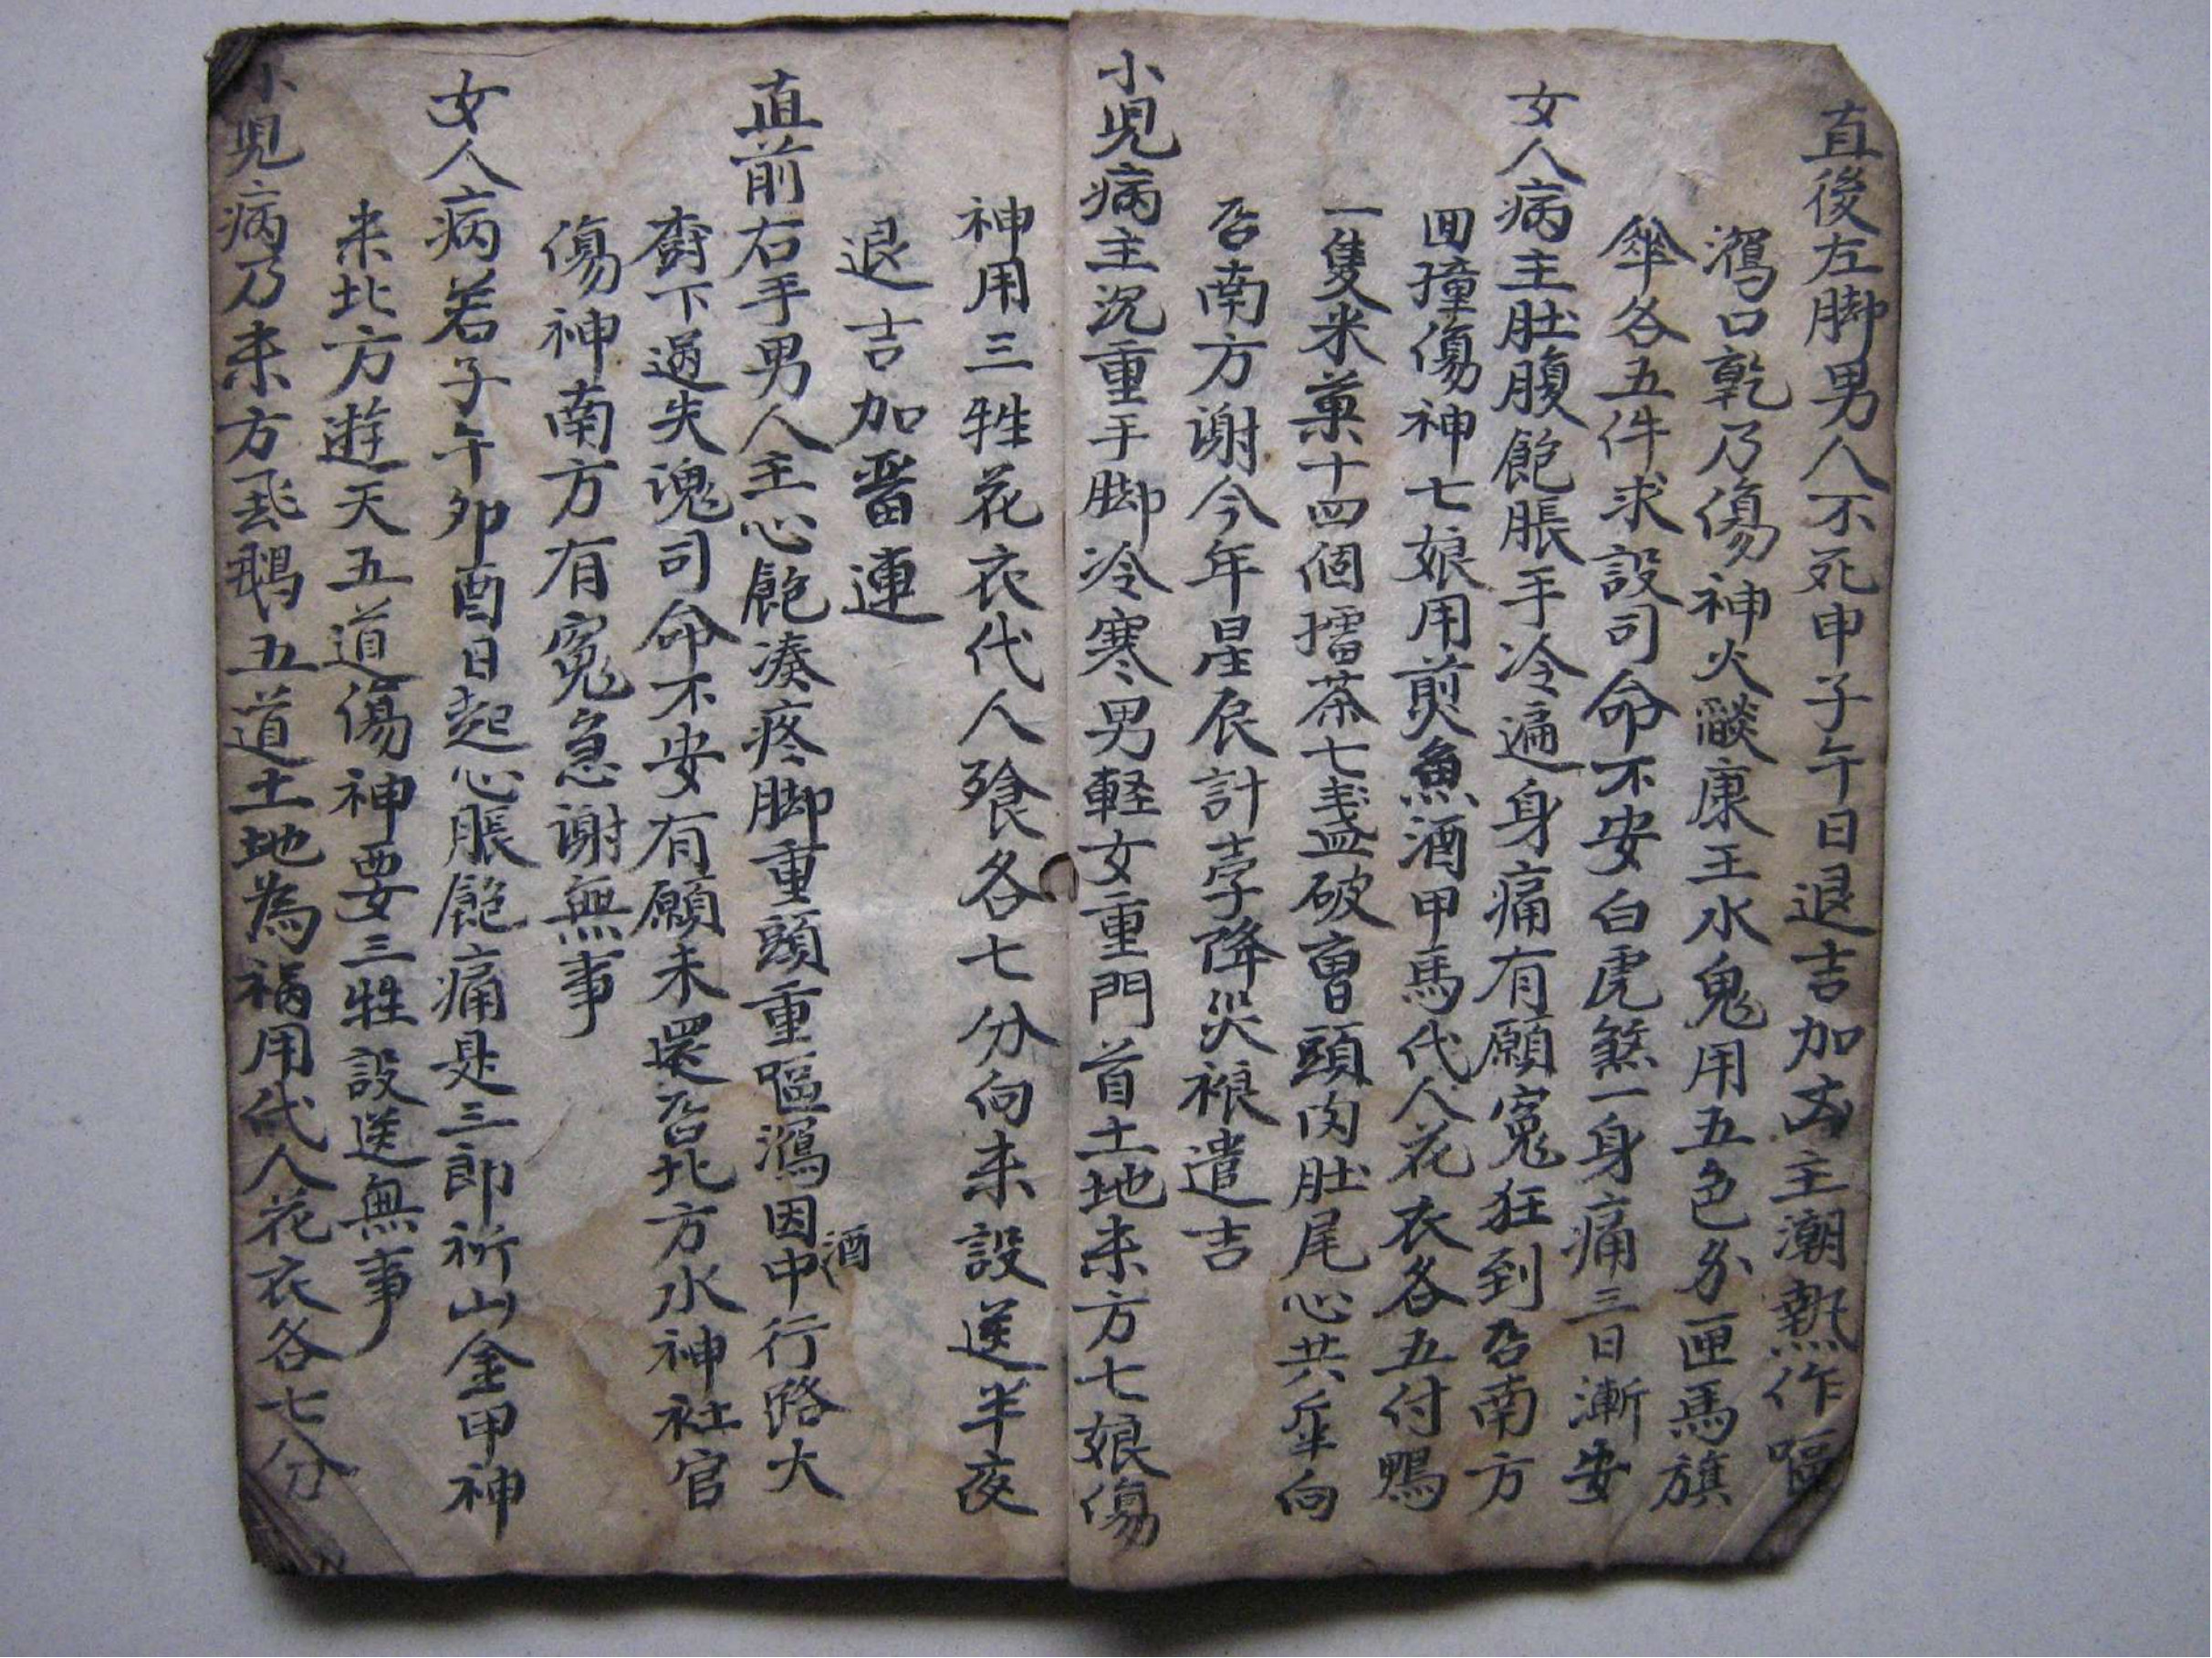 直後左脚男人不死申子午日退吉加凶主潮熱作嘔
瀉口乾乃傷神火酸康王水鬼用五色分匣馬旗
傘各五件求設司命不安白虎煞一身痛三日漸安
女人病主肚腹飽脹手冷遍身痛有願冤狂到召南方
回撞傷神七娘用煎魚酒甲馬代人花衣各五付鴨
一隻米菓十四個擂茶七盞破頭肉肚尾心共向
召南方谢今年星辰計孛降災禳遣吉
小児病主沉重手脚冷寒男軽女重門首土地来方七娘傷
神用三牲花衣代人飡各七分向来設送半夜
退吉加畨連
直前右手男人主心飽湊疼脚重頭重嘔瀉因中酒行路大
厨下過失魂司命不安有願未還召北方水神社官
傷神南方有冤急谢無事
女人病若子午卯酉日起心脹飽痛是三郎祈山金甲神
来北方遊天五道傷神要三牲設送無事
小児病乃来方天鵝五道土地為禍用代人花衣各七分